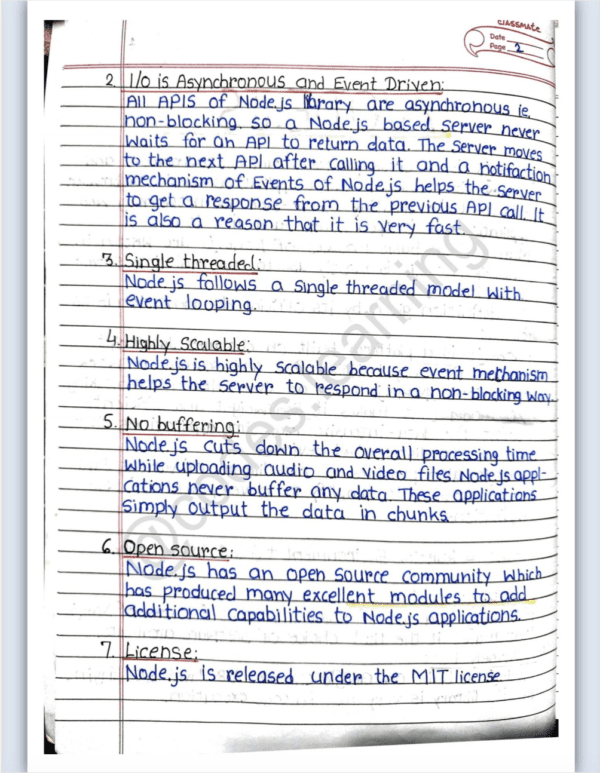 classmate
Date
Page 2
2. I/o is Asynchronous and Event Driven:
All APIS of Node.js library are asynchronous ie.
non-blocking. so a Node.js based server never
waits for an API to return data. The server moves
to the next API after calling it and a notifaction
mechanism of Events of Node.js helps the server
to get a response from the previous API call. It
is also a reason that it is very fast.
3. Single threaded:
Node.js follows a single threaded model with
event looping.
4. Highly Scalable:
Node.js is highly scalable because event mechanism
helps the server to respond in a non-blocking way.
5. No buffering:
Node.js cuts down the overall processing time
while uploading audio and video files. Node.js appl-
cations never buffer any data. These applications
simply output the data in chunks.
6. Open source:
Node.js has an open source community which
has produced many excellent modules to add
additional capabilities to Node.js applications.
7. License:
Node.js is released under the MIT license
@codes.learning